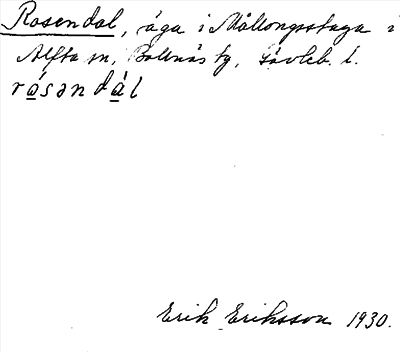 Rosendal, äga i Mållongsstuga i
Alfta sn, Bollnäs tg, Gävleb. l.
rɑ́səndɑ̀l
Erik Eriksson 1930.